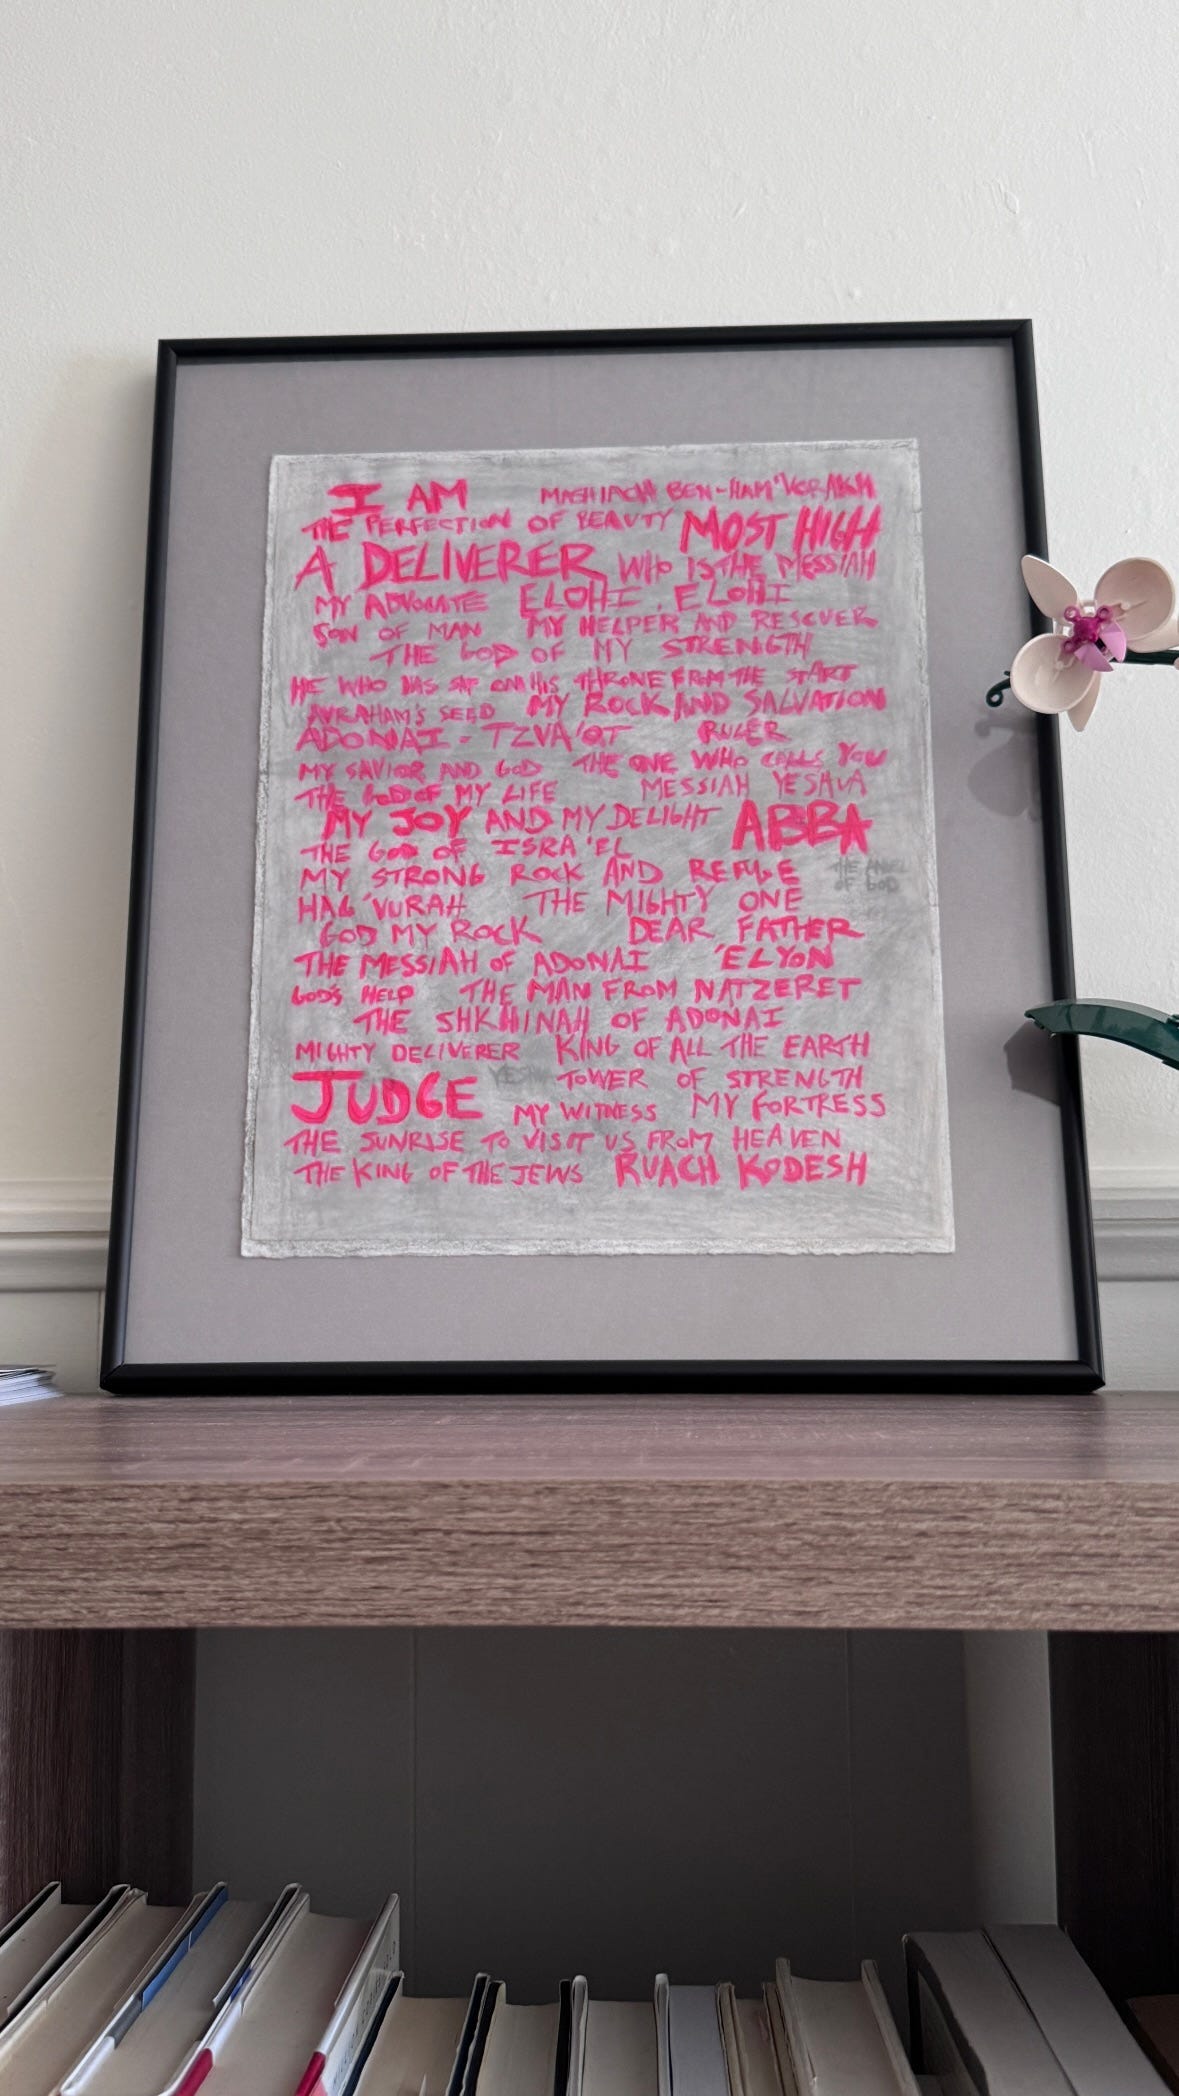 I AM MASHIACH BEN-HAM'VORAKH
THE PERFECTION OF BEAUTY MOST HIGH
A DELIVERER WHO IS THE MESSIAH
MY ADVOCATE ELOHI, ELOHI
SON OF MAN MY HELPER AND RESCUER
THE GOD OF MY STRENGTH
HE WHO HAS SAT ON HIS THRONE FROM THE START
AVRAHAM'S SEED MY ROCK AND SALVATION
ADONAI-TZVA'OT RULER
MY SAVIOR AND GOD THE ONE WHO CALLS YOU
THE GOD OF MY LIFE MESSIAH YESHUA
MY JOY AND MY DELIGHT ABBA
THE GOD OF ISRA'EL
MY STRONG ROCK AND REFUGE
THE ANGEL
OF GOD
HAG'VURAH THE MIGHTY ONE
GOD MY ROCK DEAR FATHER
THE MESSIAH OF ADONAI 'ELYON
GOD'S HELP THE MAN FROM NATZERET
THE SHKHINAH OF ADONAI
MIGHTY DELIVERER KING OF ALL THE EARTH
JUDGE TOWER OF STRENGTH
MY WITNESS MY FORTRESS
THE SUNRISE TO VISIT US FROM HEAVEN
THE KING OF THE JEWS RUACH KODESH